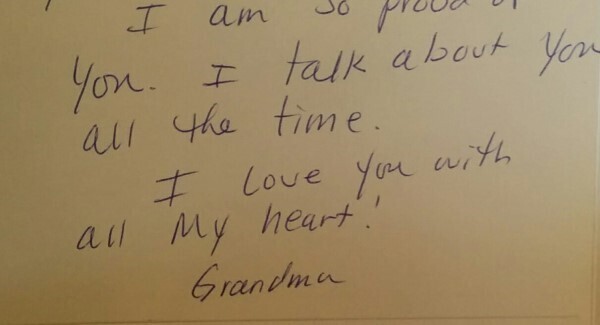 I am so proud of
you. I talk about you
all the time.
I love you with
all My heart!
Grandma